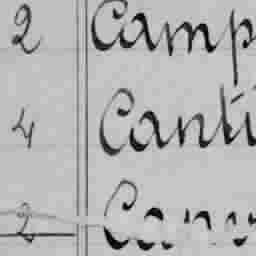 2 Camp
4 Canti
2